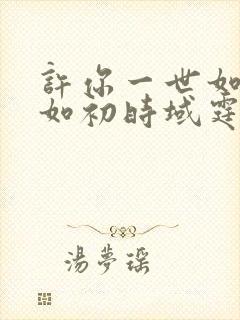 許你一世如
如初時域霆
湯夢瑤